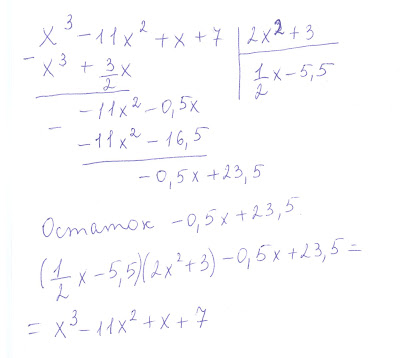 x³ - 11x² + x + 7 | 2x² + 3
- x³ + 3/2 x | 1/2 x - 5,5
- 11x² - 0,5x
- - 11x² - 16,5
- 0,5x + 23,5
Остаток - 0,5x + 23,5
(1/2 x - 5,5)(2x² + 3) - 0,5x + 23,5 =
= x³ - 11x² + x + 7